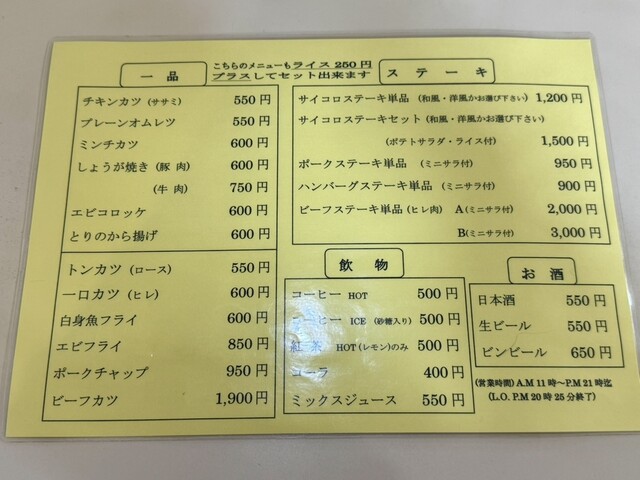 一品
こちらのメニューもライス250円
プラスしてセット出来ます
チキンカツ (ササミ) 550円
プレーンオムレツ 550円
ミンチカツ 600円
しょうが焼き (豚 肉) 600円
(牛 肉) 750円
エビコロッケ 600円
とりのから揚げ 600円
トンカツ (ロース) 550円
一口カツ (ヒレ) 600円
白身魚フライ 600円
エビフライ 850円
ポークチャップ 950円
ビーフカツ 1,900円
ステーキ
サイコロステーキ単品 (和風・洋風かお選び下さい) 1,200円
サイコロステーキセット (和風・洋風かお選び下さい)
(ポテトサラダ・ライス付) 1,500円
ポークステーキ単品 (ミニサラ付) 950円
ハンバーグステーキ単品 (ミニサラ付) 900円
ビーフステーキ単品 (ヒレ肉) A (ミニサラ付) 2,000円
B (ミニサラ付) 3,000円
飲物
コーヒー HOT 500円
コーヒー ICE (砂糖入り) 500円
紅茶 HOT (レモン)のみ 500円
コーラ 400円
ミックスジュース 550円
お酒
日本酒 550円
生ビール 550円
ビンビール 650円
(営業時間) A.M 11時～P.M 21時迄
(L.O. P.M 20時25分終了)